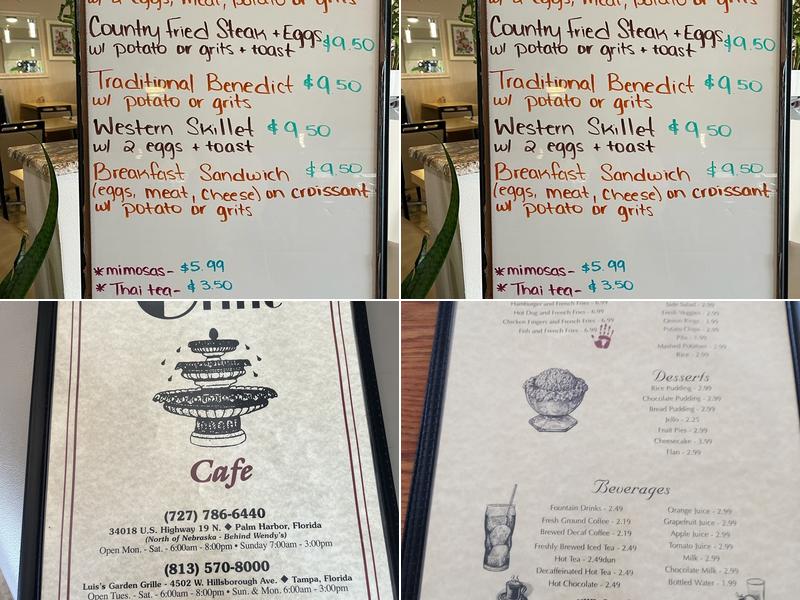 2 eggs, meat, potato or grits
Country Fried Steak + Eggs $9.50
w/ potato or grits + toast
Traditional Benedict $9.50
w/ potato or grits
Western Skillet $9.50
w/ 2 eggs + toast
Breakfast Sandwich $9.50
(eggs, meat, cheese) on croissant
w/ potato or grits
*mimosas- $5.99
*Thai tea- $3.50
2 eggs, meat, potato or grits
Country Fried Steak + Eggs $9.50
w/ potato or grits + toast
Traditional Benedict $9.50
w/ potato or grits
Western Skillet $9.50
w/ 2 eggs + toast
Breakfast Sandwich $9.50
(eggs, meat, cheese) on croissant
w/ potato or grits
*mimosas- $5.99
*Thai tea- $3.50
Cafe
(727) 786-6440
34018 U.S. Highway 19 N. ◆ Palm Harbor, Florida
(North of Nebraska - Behind Wendy's)
Open Mon. - Sat. - 6:00am - 8:00pm • Sunday 7:00am - 3:00pm
(813) 570-8000
Luis's Garden Grille - 4502 W. Hillsborough Ave. ◆ Tampa, Florida
Open Tues. - Sat. - 6:00am - 8:00pm • Sun. & Mon. 6:00am - 3:00pm
Hamburger and French Fries - 6.99
Hot Dog and French Fries - 6.99
Chicken Fingers and French Fries - 6.99
Fish and French Fries - 6.99
Side Salad - 2.99
Fresh Veggies - 2.99
Onion Rings - 3.99
Potato Chips - 2.99
Pita - 1.99
Mashed Potatoes - 2.99
Rice - 2.99
Desserts
Rice Pudding - 2.99
Chocolate Pudding - 2.99
Bread Pudding - 2.99
Jello - 2.25
Fruit Pies - 2.99
Cheesecake - 3.99
Flan - 2.99
Beverages
Fountain Drinks - 2.49
Fresh Ground Coffee - 2.19
Brewed Decaf Coffee - 2.19
Freshly Brewed Iced Tea - 2.49
Hot Tea - 2.49dun
Decaffeinated Hot Tea - 2.49
Hot Chocolate - 2.49
Orange Juice - 2.99
Grapefruit Juice - 2.99
Apple Juice - 2.99
Tomato Juice - 2.99
Milk - 2.99
Chocolate Milk - 2.99
Bottled Water - 1.99